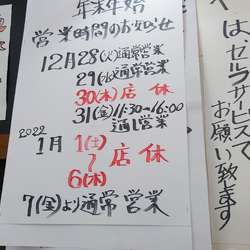 年末年始
営業時間のお知らせ
12月28(火)通常営業
29(水)通常営業
30(木)店休
31(金)11:30~16:00
通し営業
2022
1月1(土)
~店休
6(木)
7(金)より通常営業
は、セルフサービスで
お願い致します